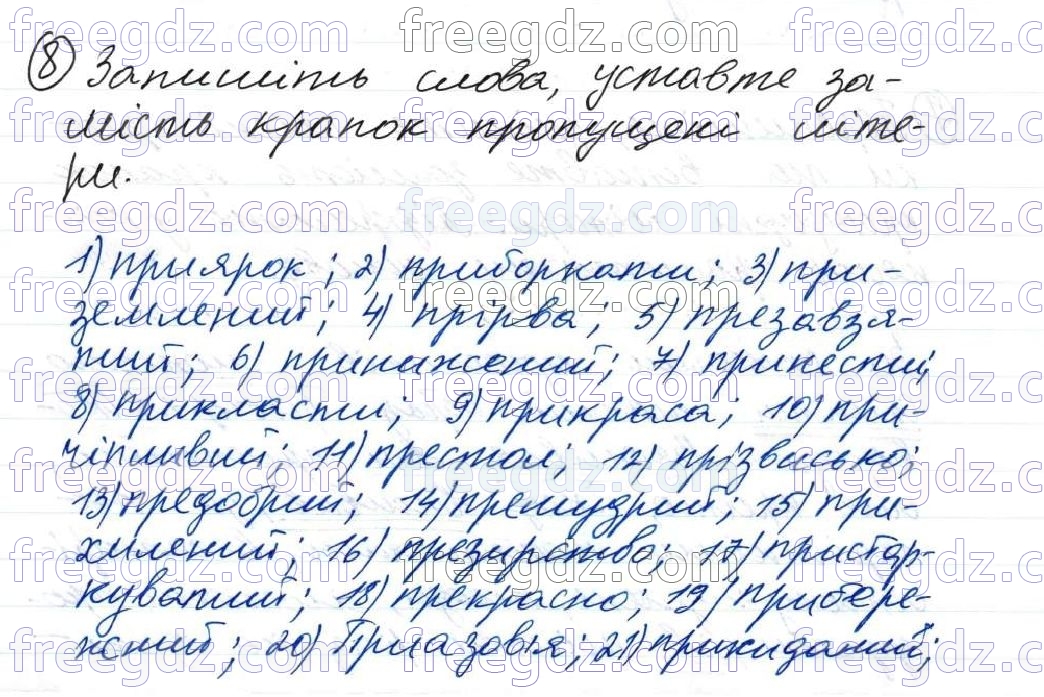 8 Запишіть слова, уставте за-
мість крапок пропущені літе-
ри.
1) приярок; 2) приборкати; 3) при-
земленит; 4) прірва; 5) презавзя-
тит; 6) принижений; 7) принести;
8) прикласти; 9) прикраса; 10) при-
чіпливий; 11) престол; 12) прізвисько;
13) предобрий; 14) премудрий; 15) при-
хилений; 16) презирство; 17) пристар-
куватий; 18) прекрасно; 19) прибере-
жений; 20) Приазов'я; 21) прикиданий;
freegdz.com